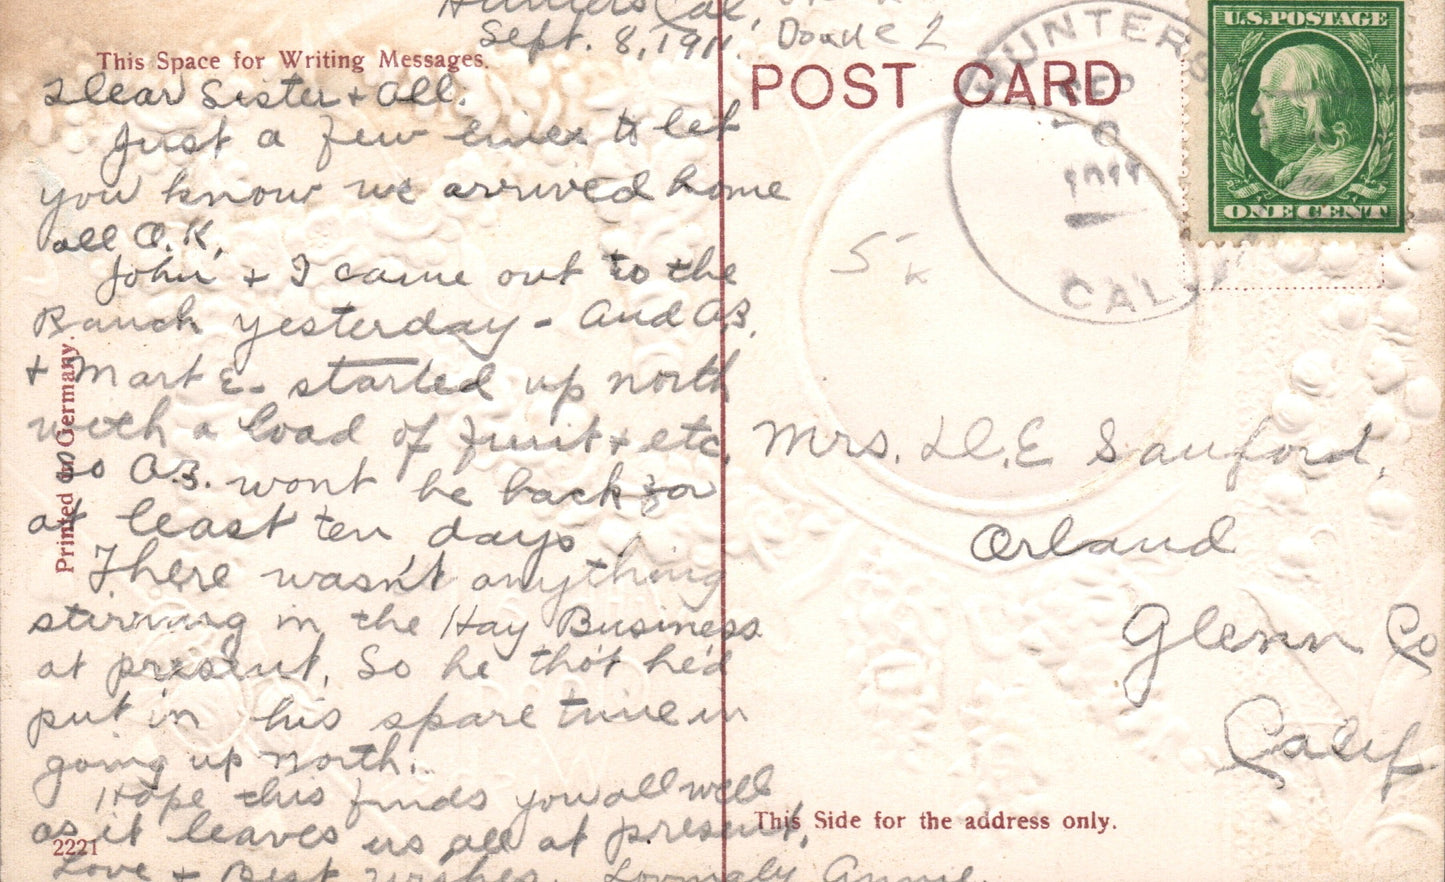 Hunters Cal,
Sept. 8, 1911.
This Space for Writing Messages.
Dear Sister & All.
Just a few lines to let
you know we arrived home
all O.K.
John & I came out to the
Ranch yesterday - And A.B.
& Mart E. started up north
with a load of fruit & etc,
so A.B. wont be back for
at least ten days
There wasn't anything
stirring in the Hay Business
at present. So he tho't he'd
put in his spare time in
going up north.
Hope this finds you all well
as it leaves us all at present,
Love & Best wishes. Lovingly Annie.
Printed in Germany.
2221
POST CARD
HUNTERS
SEP
CAL.
U.S. POSTAGE
ONE CENT
Mrs. D.E Sanford,
Orland
Glenn Co
Calif
This Side for the address only.